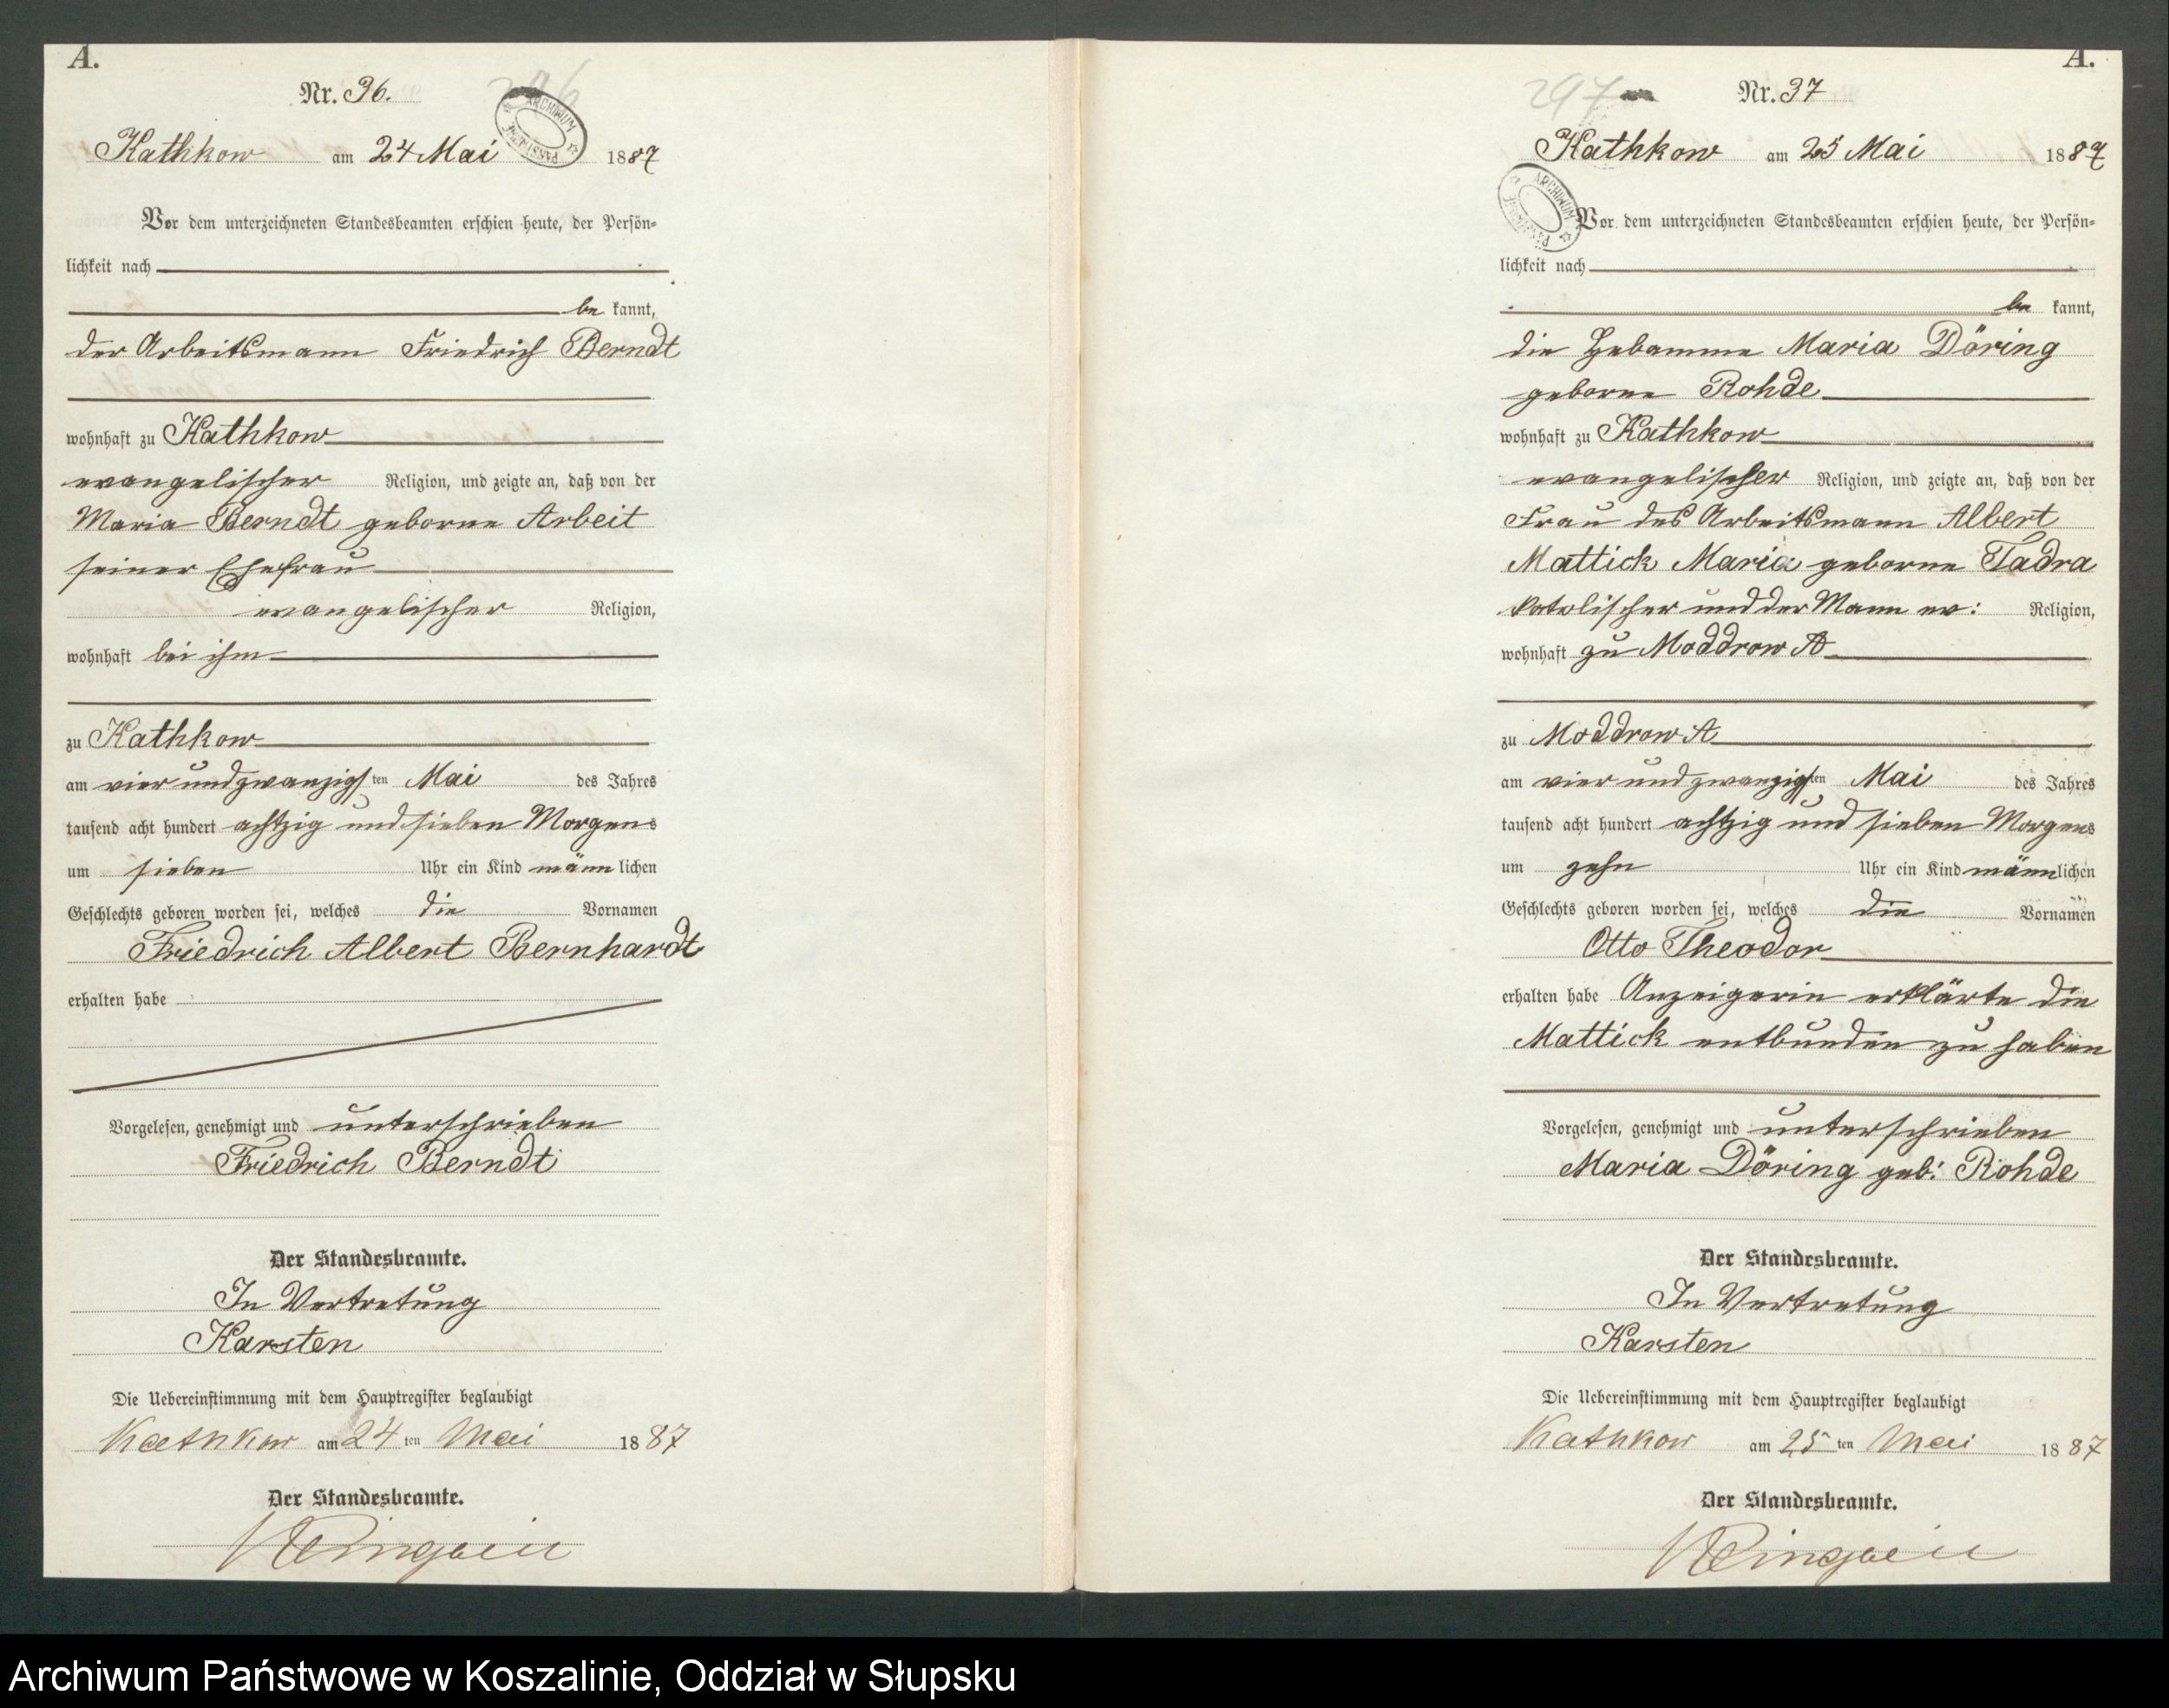 A.
Nr. 36.
ARCHIWUM PAŃSTWOWE
Kathkow am 24 Mai 1887
Vor dem unterzeichneten Standesbeamten erschien heute, der Persön-
lichkeit nach
be kannt,
der Arbeitsmann Friedrich Berndt
wohnhaft zu Kathkow
evangelischer Religion, und zeigte an, daß von der
Maria Berndt geborne Arbeit
seiner Ehefrau
evangelischer Religion,
wohnhaft bei ihm
zu Kathkow
am vier und zwanzigsten Mai des Jahres
tausend acht hundert achtzig und sieben Morgens
um sieben Uhr ein Kind männlichen
Geschlechts geboren worden sei, welches die Vornamen
Friedrich Albert Bernhardt
erhalten habe
Vorgelesen, genehmigt und unterschrieben
Friedrich Berndt
Der Standesbeamte.
In Vertretung
Karsten
Die Uebereinstimmung mit dem Hauptregister beglaubigt
Kathkow am 24 ten Mai 1887
Der Standesbeamte.
A.
297 Nr. 37
Kathkow am 25 Mai 1887
ARCHIWUM PAŃSTWOWE
Vor dem unterzeichneten Standesbeamten erschien heute, der Persön-
lichkeit nach
be kannt,
die Hebamme Maria Döring
geborne Rohde
wohnhaft zu Kathkow
evangelischer Religion, und zeigte an, daß von der
Frau des Arbeitsmann Albert
Mattick Maria geborne Tadra
katolischer und der Mann ev: Religion,
wohnhaft zu Moddrow A
zu Moddrow A
am vier und zwanzigsten Mai des Jahres
tausend acht hundert achtzig und sieben Morgens
um zehn Uhr ein Kind männlichen
Geschlechts geboren worden sei, welches die Vornamen
Otto Theodor
erhalten habe Anzeigerin erklärte die
Mattick entbunden zu haben
Vorgelesen, genehmigt und unterschrieben
Maria Döring geb: Rohde
Der Standesbeamte.
In Vertretung
Karsten
Die Uebereinstimmung mit dem Hauptregister beglaubigt
Kathkow am 25 ten Mai 1887
Der Standesbeamte.
Archiwum Państwowe w Koszalinie, Oddział w Słupsku